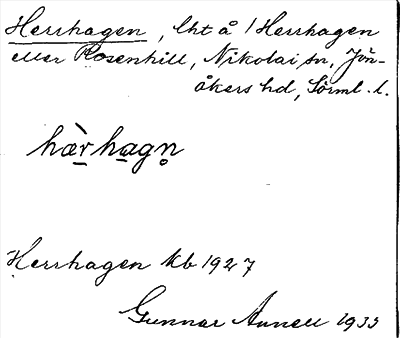 Herrhagen, lht å 1 Herrhagen
eller Rosenhill, Nikolai sn, Jön-
åkers hd, Sörml. l.
hæ̀r hagn̥
Herrhagen kb 1927
Gunnar Annell 1935